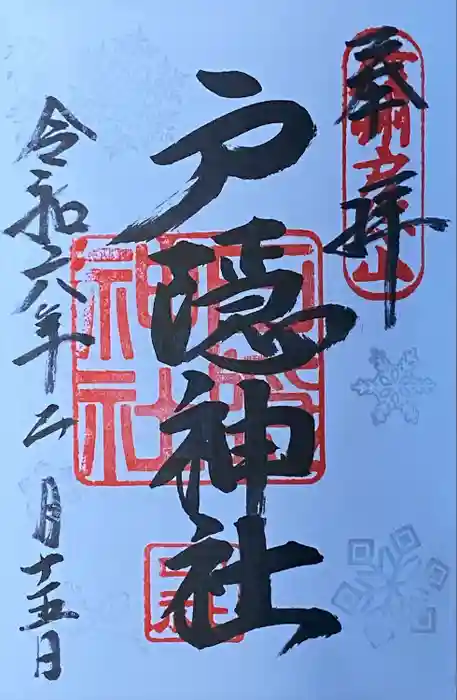 奉拝
戸隠神社
令和六年二月十五日
神社